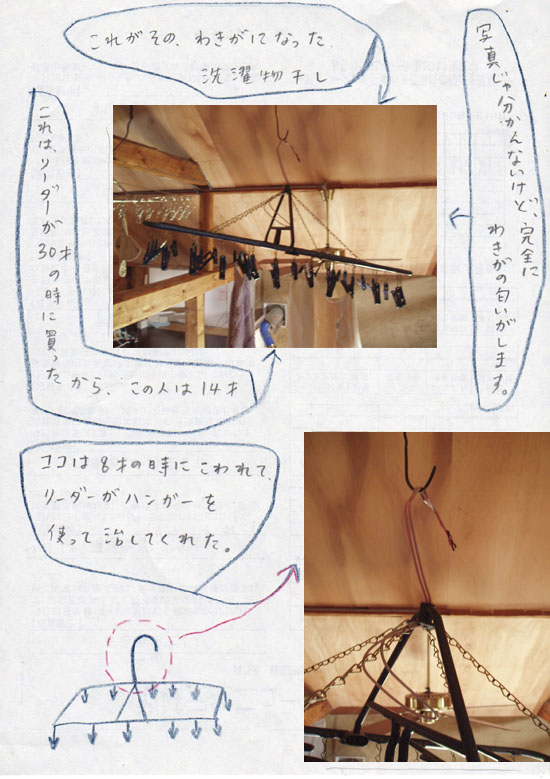 これがその、わきがになった
洗濯物干し
写真じゃ分かんないけど、完全に
わきがの匂いがします。
これは、リーダーが
30才の時に買った
から、この人は14才
ココは8才の時にこわれて、
リーダーがハンガーを
使って治してくれた。